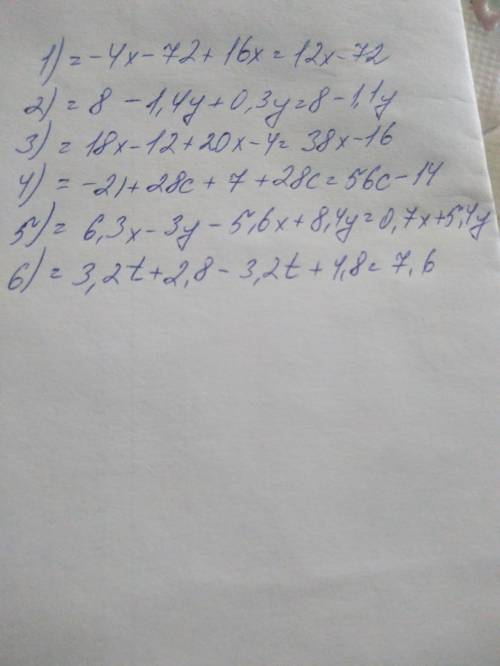 1) = -4x - 72 + 16x = 12x - 72
2) = 8 - 1,4y + 0,3y = 8 - 1,1y
3) = 18x - 12 + 20x - 4 = 38x - 16
4) = -21 + 28c + 7 + 28c = 56c - 14
5) = 6,3x - 3y - 5,6x + 8,4y = 0,7x + 5,4y
6) = 3,2t + 2,8 - 3,2t + 4,8 = 7,6